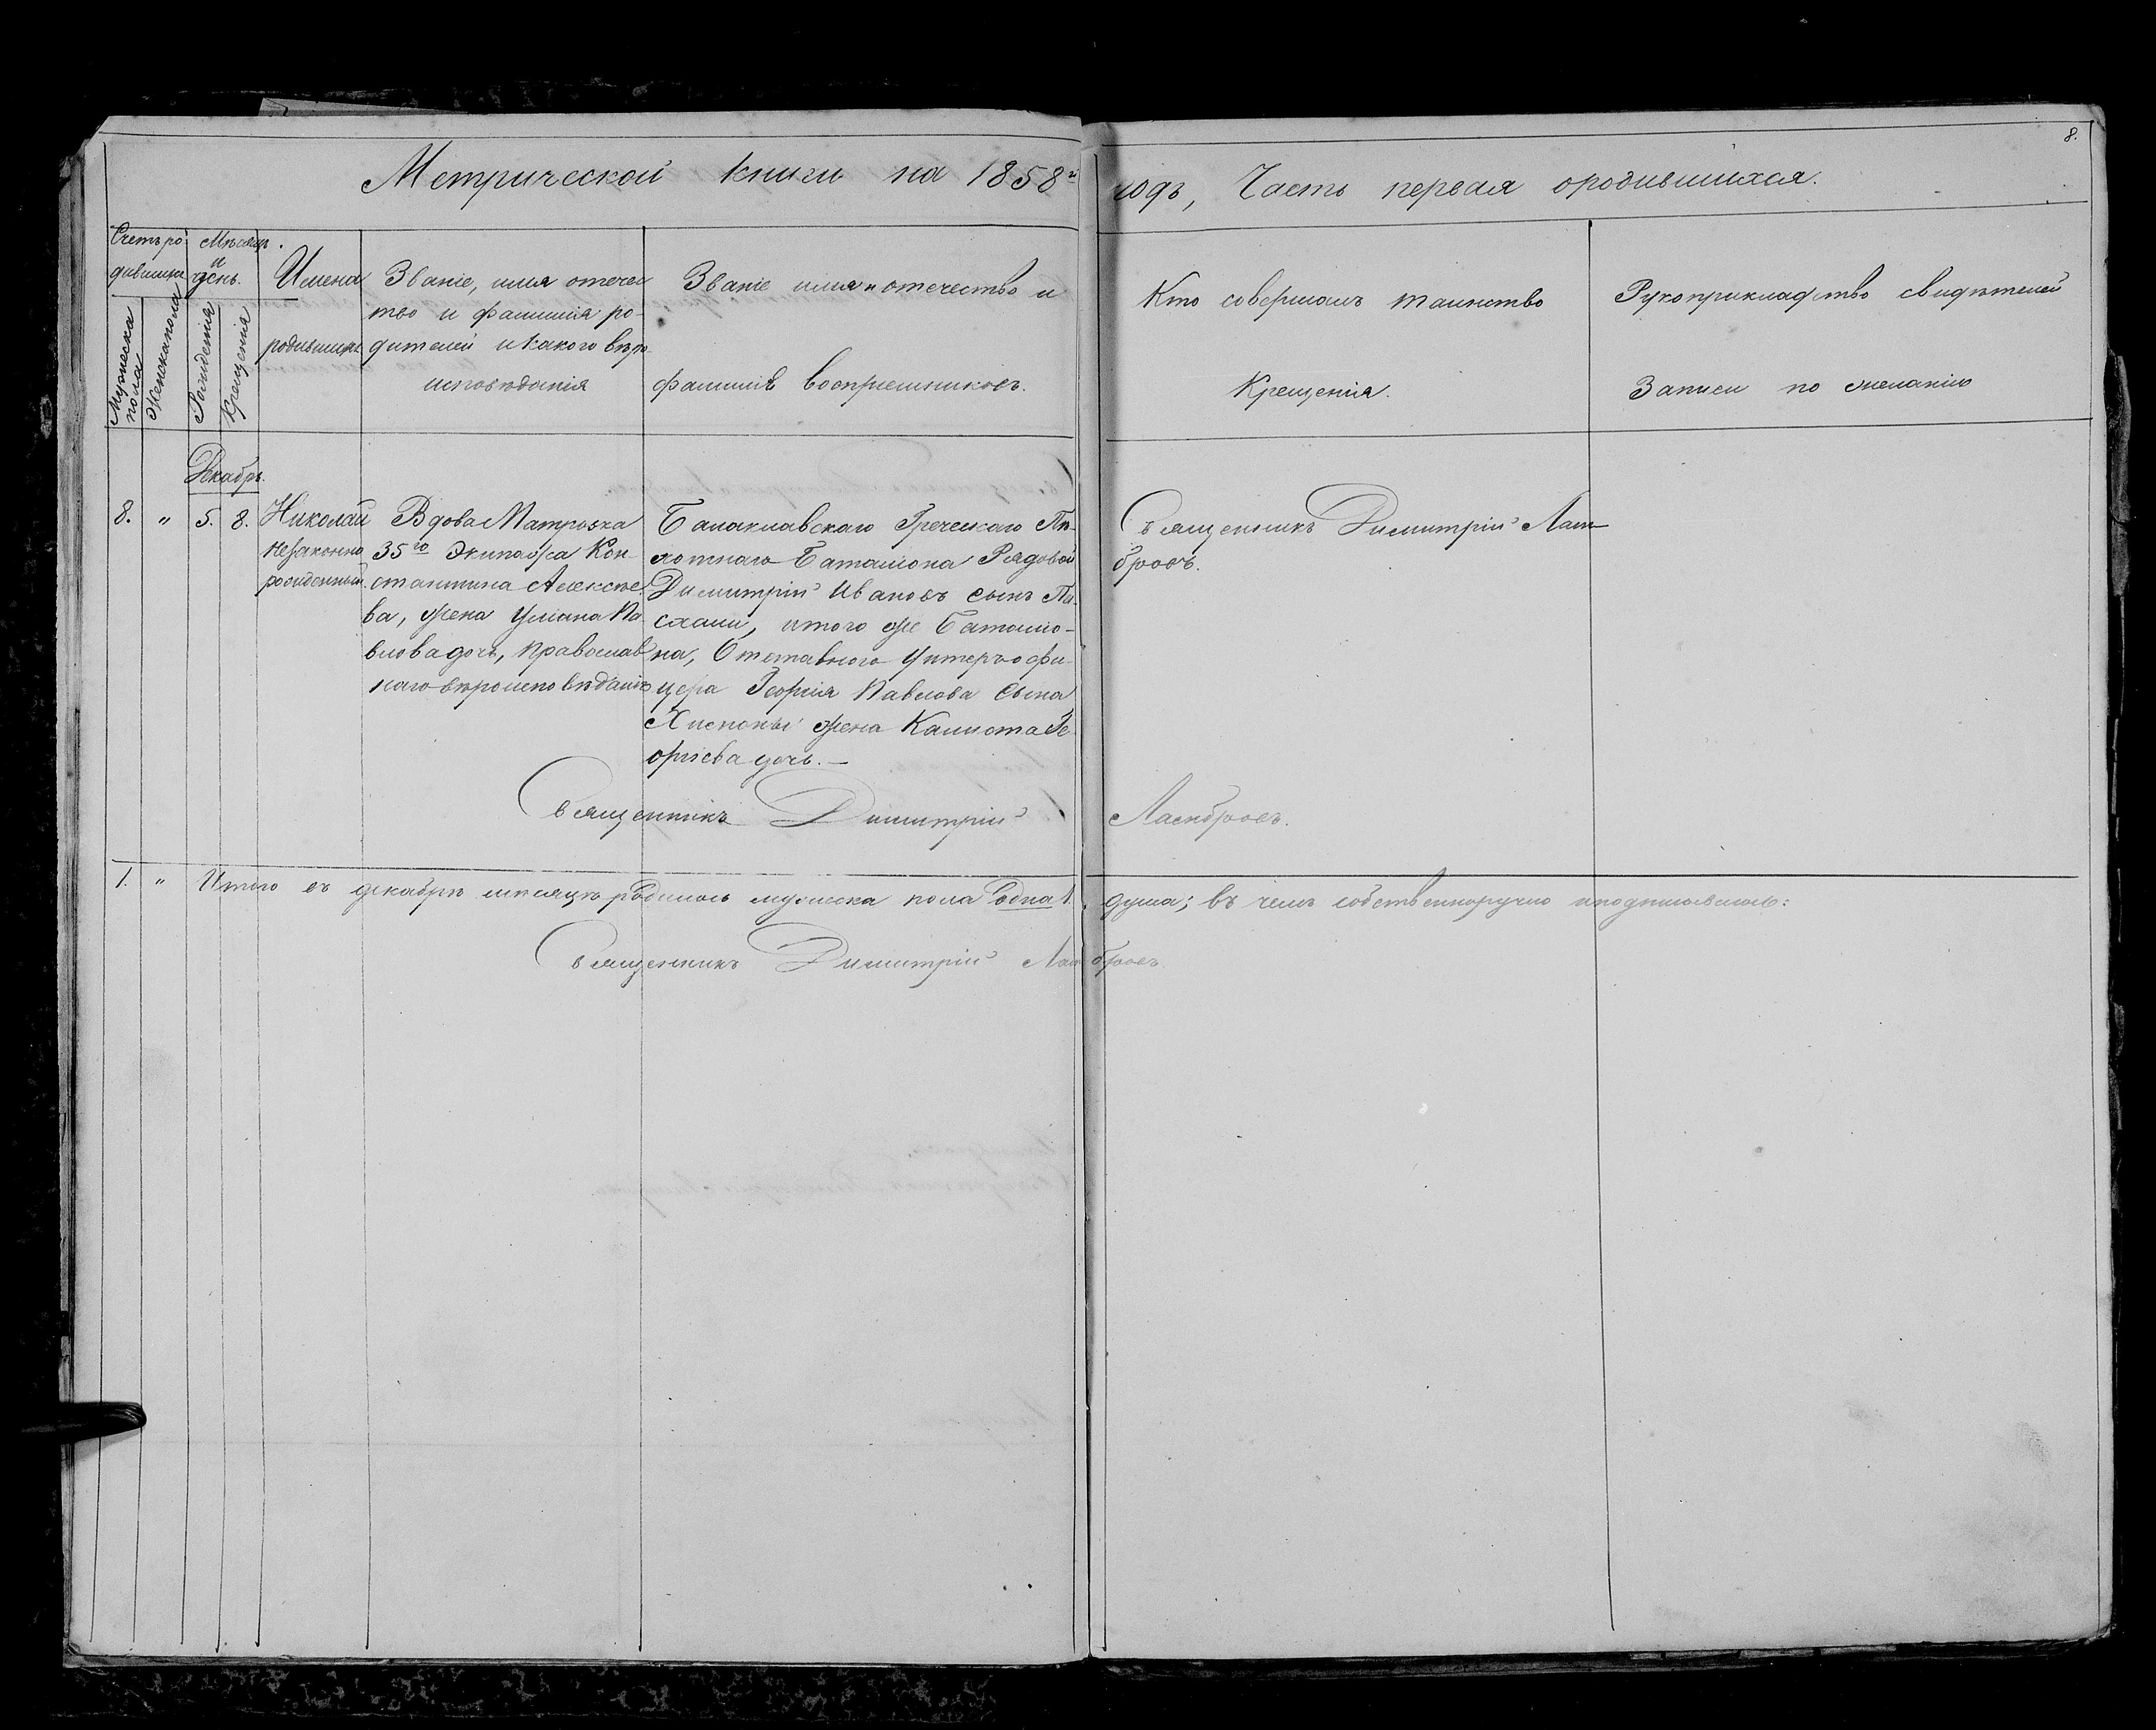 8.
Метрической книги на 1858й годъ, Часть первая ородившихся.
Счетъ ро
дившихся
Мѣсяцъ
и
день.
Мужеска
пола
Женска пола
Рожденія
Крещенія
Имена
родившихъ
Званіе, имя отечес
тво и фамилія ро-
дителей и какого вѣро
исповѣданія
Званіе имя и отечество и
фамилія воспріемниковъ.
Кто совершалъ таинство
Крещенія.
Рукоприкладство свидѣтелей
Записи по желанію
Декабрь.
8. " 5. 8.
Николай
незаконно
рожденный.
Вдова Матроска
35го Экипажа Кон
стантина Алексѣе
ва, жена Уліана Па
влова дочь, православ
наго вѣроисповѣданія
Балаклавскаго Греческаго Пѣ-
хотнаго Баталіона Рядовой
Димитрій Ивановъ сынъ Па
схали, итого же Баталіо-
на, Отставного Унтеръ офи-
цера Георгія Павлова сына
жена Калиота Ге
оргіева дочь. —
Священникъ Димитрій Лам
бровъ.
Священникъ Димитрій Ламбровъ.
1. " Итого въ декабрѣ мѣсяцѣ родилось мужеска пола одна 1. душа; въ чемъ собственноручно иподписываюсь:
Священникъ Димитрій Лам бровъ